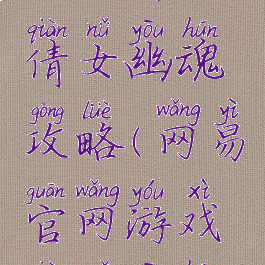 qiàn nǚ yōu hún
倩女幽魂
gōng lüè wǎng yì
攻略(网易
guān wǎng yóu xì
官网游戏